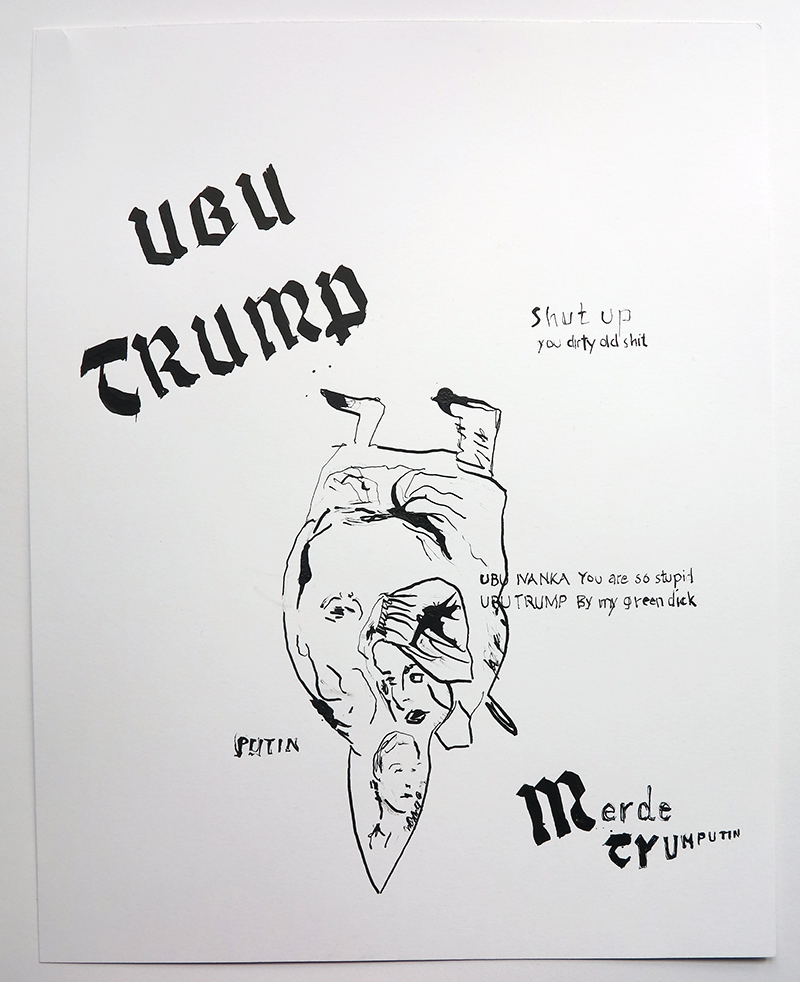 UBU
TRUMP
Shut up
you dirty old shit
UBU IVANKA You are so stupid
UBU TRUMP By my green dick
PUTIN
Merde
TrUMPUTIN